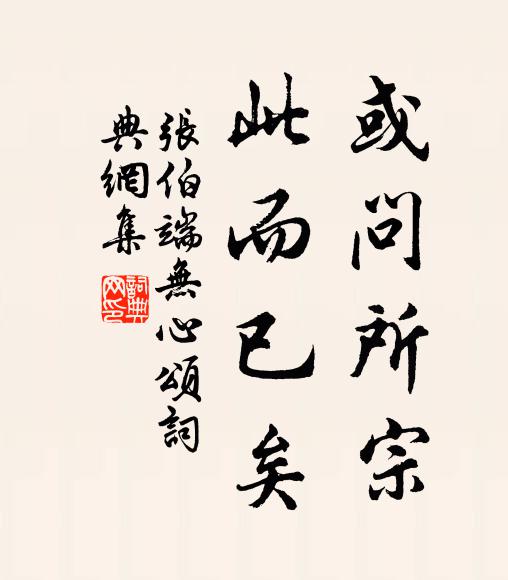 或問所宗
此而已矣
張伯端無心頌詞
典網集
詞典
网印